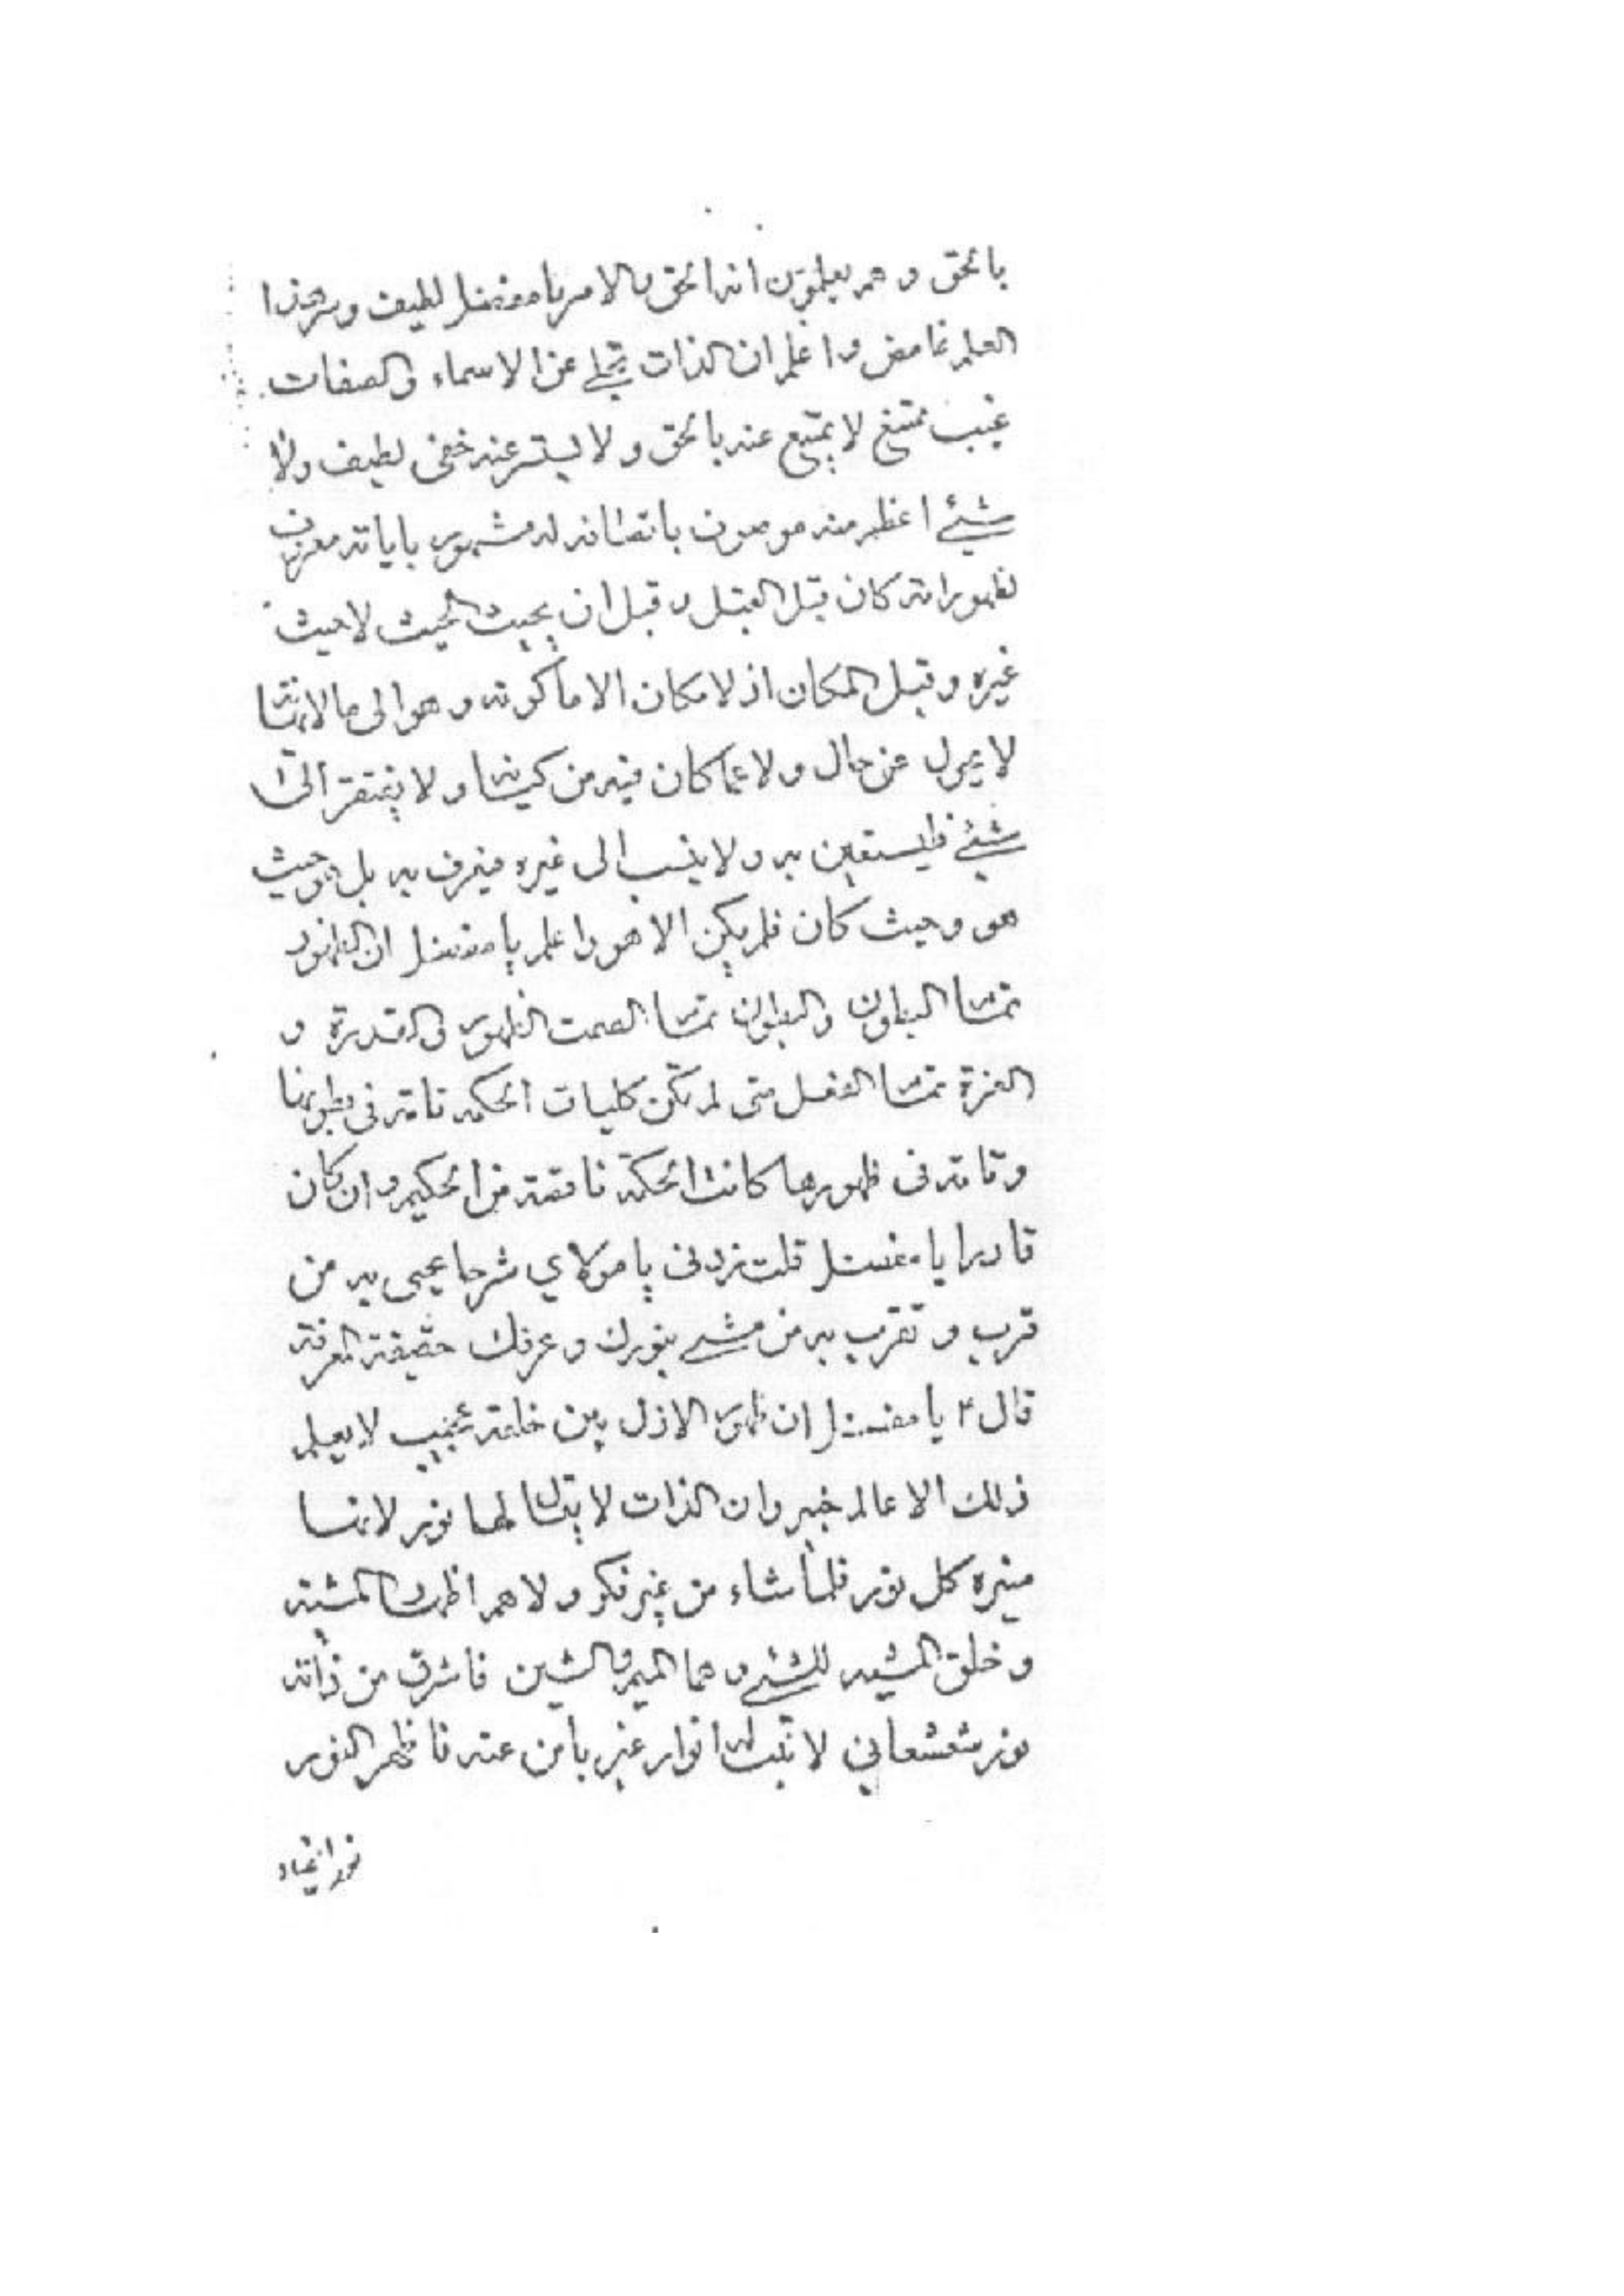 بالحق وهم يعلمون انه الحق والامر يا مفضل لطيف وسر هذا
العلم غامض واعلم ان الذات تجلى عن الاسماء والصفات
غيب ممتنع لا يمتنع عنه بالحق ولا يستتر عنه خفى لطيف ولا
شيئ اعظم منه موصوف باتصافه له مشهور باياته معروف
بظهوراته كان قبل القبل وقبل ان يحيث الحيث لا حيث
غيره وقبل المكان اذ لا مكان الا ما كونه وهو الى ما لا نهاية
لا يحول عن حال ولا عما كان فيه من كيفيته ولا يفتقر الى
شيئ فليستعين به ولا ينسب الى غيره فيعرف به بل هو حيث
هو وحيث كان فلم يكن الا هو واعلم يا مفضل ان الظهور
تمام البطون والبطون تمام الصمت الظهور والقدرة و
العزة تمام الفعل متى لم تكن كليات الحكمه تامه فى بطونها
وتامه فى ظهورها كانت الحكمة ناقصه من الحكيم وان كان
قادرا يا مفضل قلت زدنى يا مولاي شرحا يحيى به من
قرب وتقرب به من مشى بنورك وعرفك حقيقة المعرفة
قال ء يا مفضل ان ظهور الازل بين خلقه عجيب لا يعلم
ذلك الا عالم خبير وان الذات لا يقال لها نور لانها
منيره كل نور فلما شاء من غير فكر ولا هم اظهار المشيه
وخلق المشيه للشئ وهما الميم والشين فاشرق من ذاته
نور شعشعاني لا تثبت له انوار غير باين عنه فاظهر النور